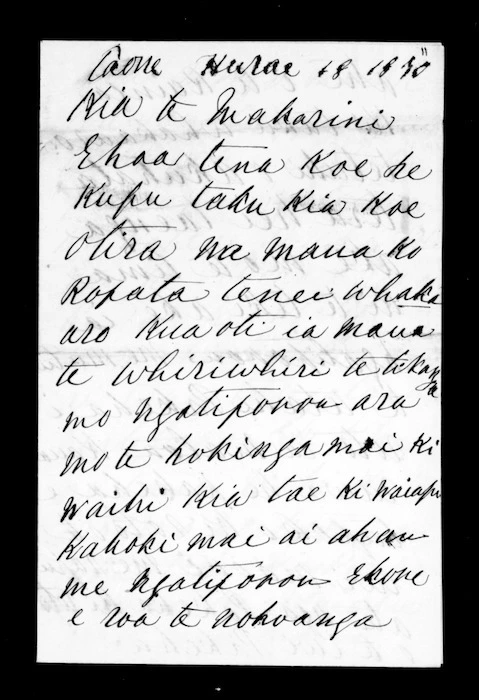 Taone Hurae 18 1870"
Kia te Makarini
Ehoa tena Koe he
Kupu taku Kia Koe
otira na maua ko
Ropata tenei whaka
aro Kua oti ia maua
te whiriwhiri te tikanga
mo Ngatiporou ara
mo te hokinga mai Ki
Waihi Kia tae Ki Waiapu
Kahoki mai ai ahau
me Ngatiporou Ekore
e roa te nohoanga